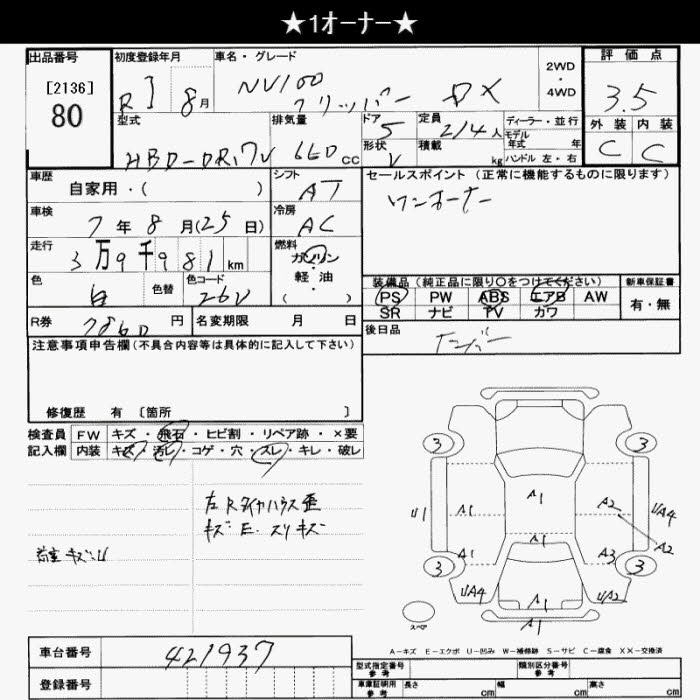 ★1オーナー★
出品番号 初度登録年月 車名・グレード 2WD・4WD 評価点
[2136]
80
R1 8月 NV100 クリッパー DX 3.5
型式 排気量 ドア 定員 ディーラー・並行 外装 内装
HBD-DR17V 660 CC 5 2/4人 モデル年式 年 C C
形状 V 積載 kg ハンドル 左・右
車歴 自家用・( ) シフト AT セールスポイント (正常に機能するものに限ります)
車検 7年8月(25日) 冷房 AC ワンオーナー
走行 3万9千981km 燃料 ガソリン・軽油・( )
色 白 色替 色コード 26U 装備品 (純正品に限り○をつけてください) 新車保証書
PS PW ABS エアB AW 有・無
SR ナビ TV カワ
R券 7860円 名変期限 月 日 後日品
注意事項申告欄 (不具合内容等は具体的に記入して下さい) ナンバー
修復歴 有 〔箇所 〕
検査員 FW キズ・飛石・ヒビ割・リペア跡・×要
記入欄 内装 キズ・汚レ・コゲ・穴・スレ・キレ・破レ
左Rタイヤハウス歪
キズ E. スリキズ
荷室キズ.U
3 3
A1
U1 A1 A2 UA4
A1 A2
A1 A3
3 3
UA4 A1 UA2
A1
スペア
A−キズ E−エクボ U−凹み W−補修跡 S−サビ C−腐食 XX−交換済
車台番号 421937 型式指定番号 参考 類別区分番号 参考
登録番号 車庫証明用 参考 長さ cm 幅 cm 高さ cm